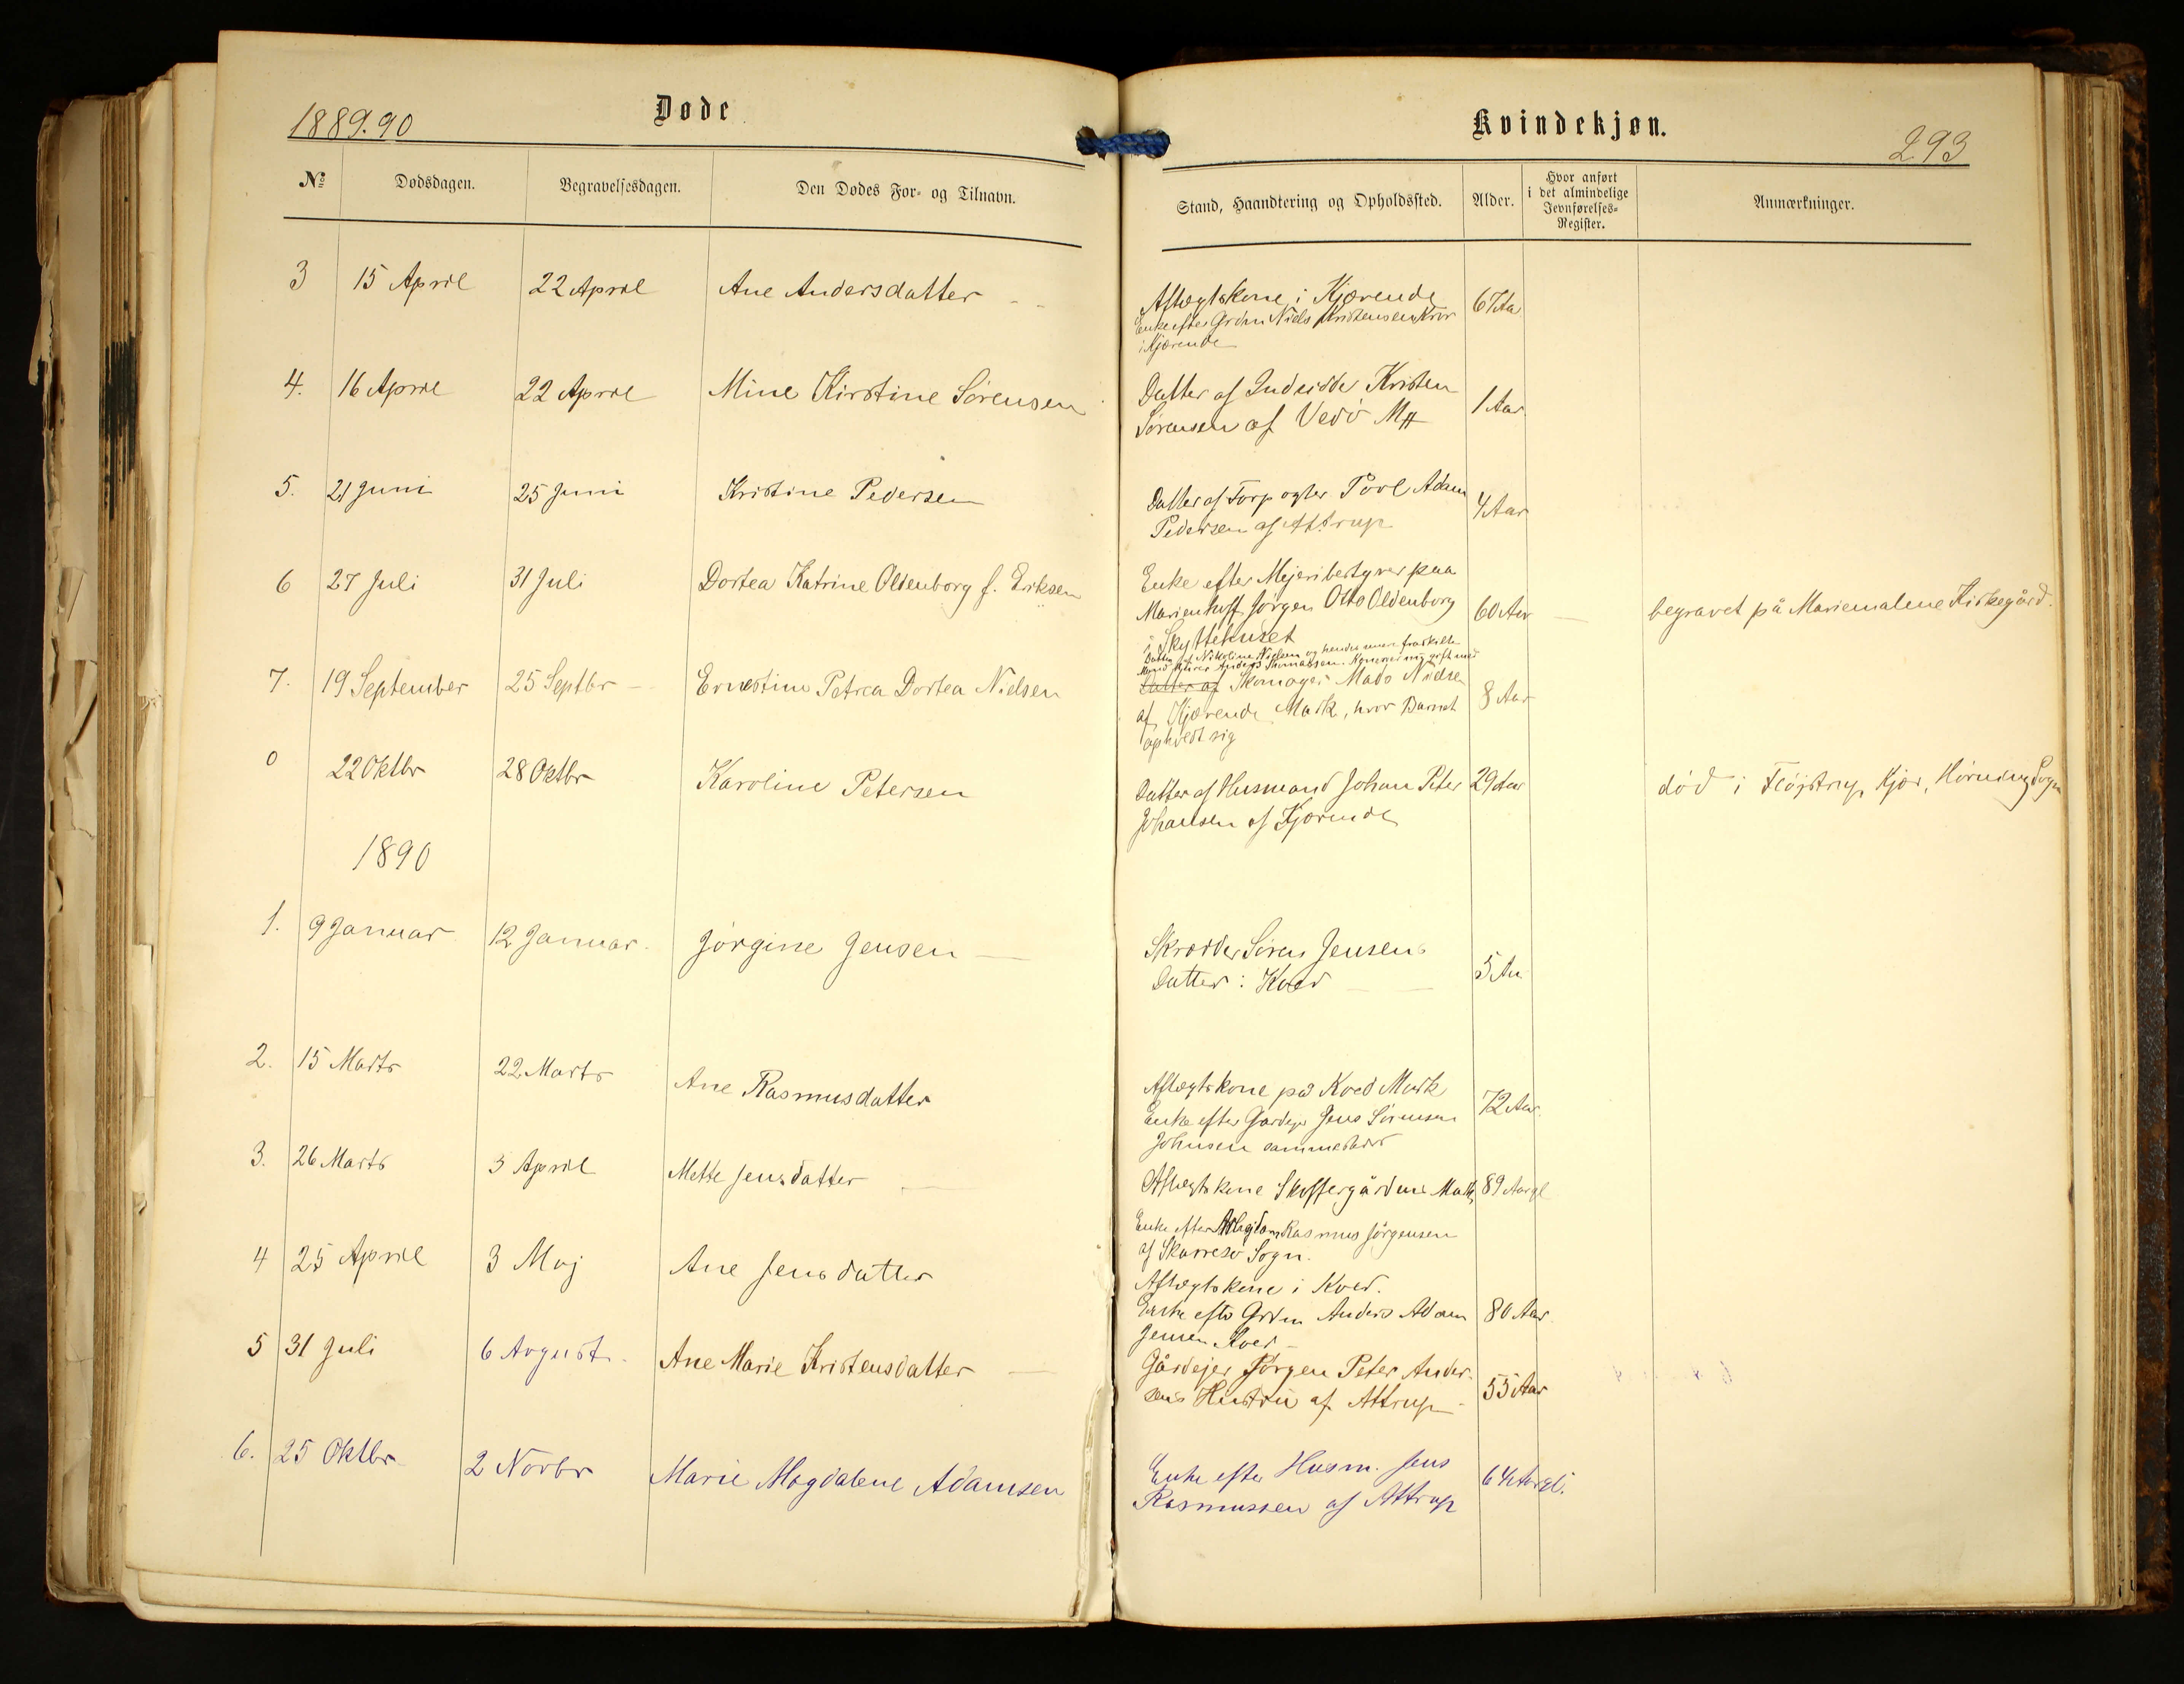 1889.90
Døde
Kvindekjøn.
293
№ Dødsdagen. Begravelsesdagen. Den Dødes For- og Tilnavn. Stand, Haandtering og Opholdssted. Alder. Hvor anført i det almindelige Jevnførelses-Register. Anmærkninger.
3 15 April 22 April Ane Andersdatter
Aftægtskone i Kjærende 67 Aa
Enke efter Grdm Niels Kristensen
i Kjærende
4. 16 April 22 April Mine Kirstine Sørensen
Datter af Indsidder Kristen
Sørensen af Vedø Mk 1 Aar
5. 21 Juni 25 Juni Kristine Pedersen
Datter af Povl Adam
Pedersen af Attrup 4 Aar
6 27 Juli 31 Juli Dortea Katrine Oldenborg f. Eriksen
Enke efter Mejeribestyrer paa
Marienhoff Jørgen Otto Oldenborg 60 Aar begravet på Mariemalene Kirkegård.
i Skyttehuset
7. 19 September 25 Septbr Ernestine Petrea Dortea Nielsen
Datter af Nikoline Nielsen og hendes mere fraskilte
Mand Anders Thomassen. Konen nu gift med
Datter af Skomager Mads Nielsen
af Kjærende Mark, hvor Barnet 8 Aar
opholdt sig
0 22 Oktbr 28 Oktbr Karoline Petersen
Datter af Husmand Johan Peter 29 Aar død i Fløjstrup Kjær, Hørning Sogn
Johansen af Kjærende
1890
1. 9 Januar 12 Januar. Jørgine Jensen
Skrædder Søren Jensens
Datter i Koed 5 Aa
2. 15 Marts 22 Marts Ane Rasmusdatter
Aftægtskone på Koed Mark
Enke efter Gårdejer Jens Sørensen 72 Aar
Johnsen sammesteds
3. 26 Marts 3 April Mette Jensdatter
Aftægtskone Skiffergårdens Mark 89 Aar gl
Enke efter Rasmus Jørgensen
af Skarresø Sogn.
4 25 April 3 Maj Ane Jensdatter
Aftægtskone i Koed.
Enke efter Grdm Anders Adam 80 Aar
Jensen Koed
5 31 Juli 6 Avgust. Ane Marie Kristensdatter
Gårdejer Jørgen Peter Ander-
sens Hustru af Attrup 55 Aar
6. 25 Oktbr 2 Novbr Marie Magdalene Adamsen
Enke efter Husm. Jens 64 Aar gl.
Rasmussen af Attrup